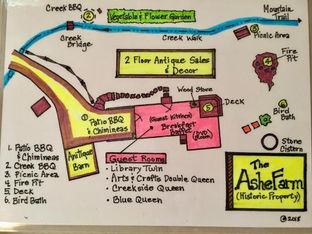 Creek BBQ
2
Vegetable & Flower Garden
Mountain
Trail
Creek
Bridge
Creek Walk
3
Picnic Area
2 Floor Antique Sales
& Decor
Fire
Pit
4
Wood Stove
5
Deck
1
Patio BBQ
& Chimineas
(Guest Kitchen)
Breakfast
Buffet
6
Bird
Bath
Antique
Barn
Stone
Cistern
1. Patio BBQ
& Chimineas
2. Creek BBQ
3. Picnic Area
4. Fire Pit
5. Deck
6. Bird Bath
Guest Rooms
• Library Twin
• Arts & Crafts Double Queen
• Creekside Queen
• Blue Queen
The
AsheFarm
(Historic Property)
@ 2018